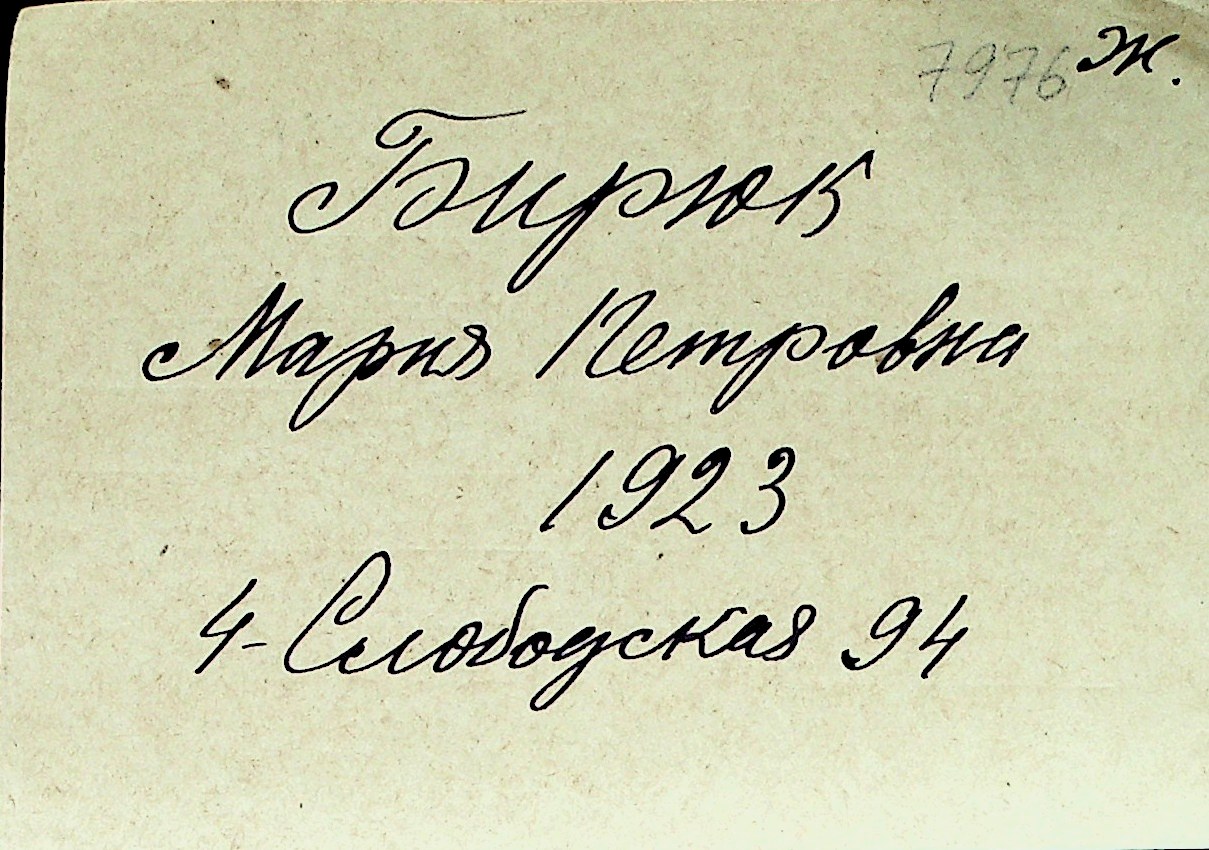 7976 Ж.
Бирюк
Мария Петровна
1923
4-Слободская 94